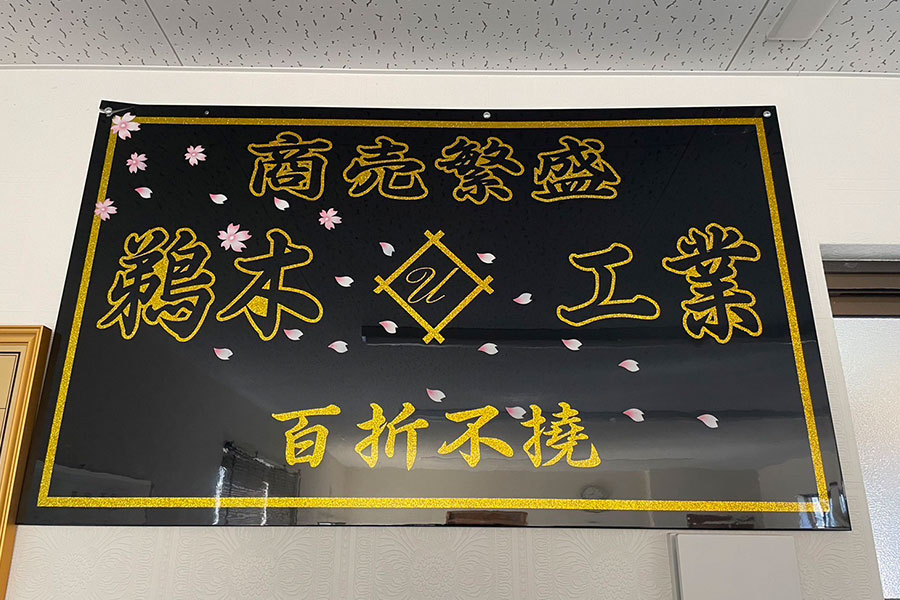 商売繁盛
鵜木 U 工業
百折不撓